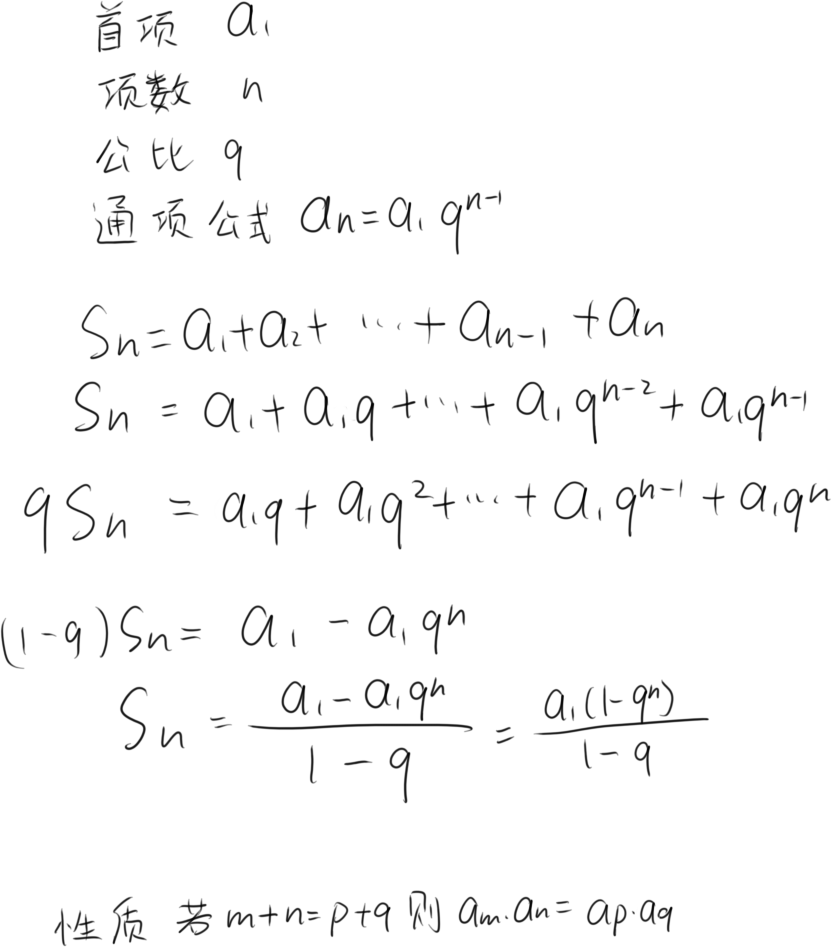 首项 a₁
项数 n
公比 q
通项公式 aₙ=a₁qⁿ⁻¹
Sₙ=a₁+a₂+…+aₙ₋₁+aₙ
Sₙ=a₁+a₁q+…+a₁qⁿ⁻²+a₁qⁿ⁻¹
qSₙ=a₁q+a₁q²+…+a₁qⁿ⁻¹+a₁qⁿ
(1-q)Sₙ=a₁-a₁qⁿ
Sₙ=\frac{a₁-a₁qⁿ}{1-q}=\frac{a₁(1-qⁿ)}{1-q}
性质 若m+n=p+q 则 a_m·a_n=a_p·a_q